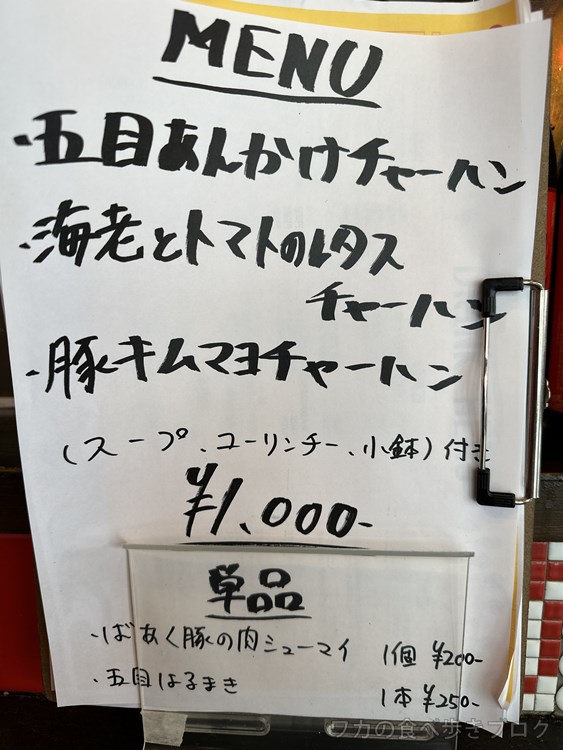 MENU
・五目あんかけチャーハン
・海老とトマトのレタス
チャーハン
・豚キムマヨチャーハン
(スープ、ユーリンチー、小鉢)付き
¥1,000-
単品
・ばあく豚の肉シューマイ 1個 ¥200-
・五目はるまき 1本 ¥250-
ワカの食べ歩きブログ